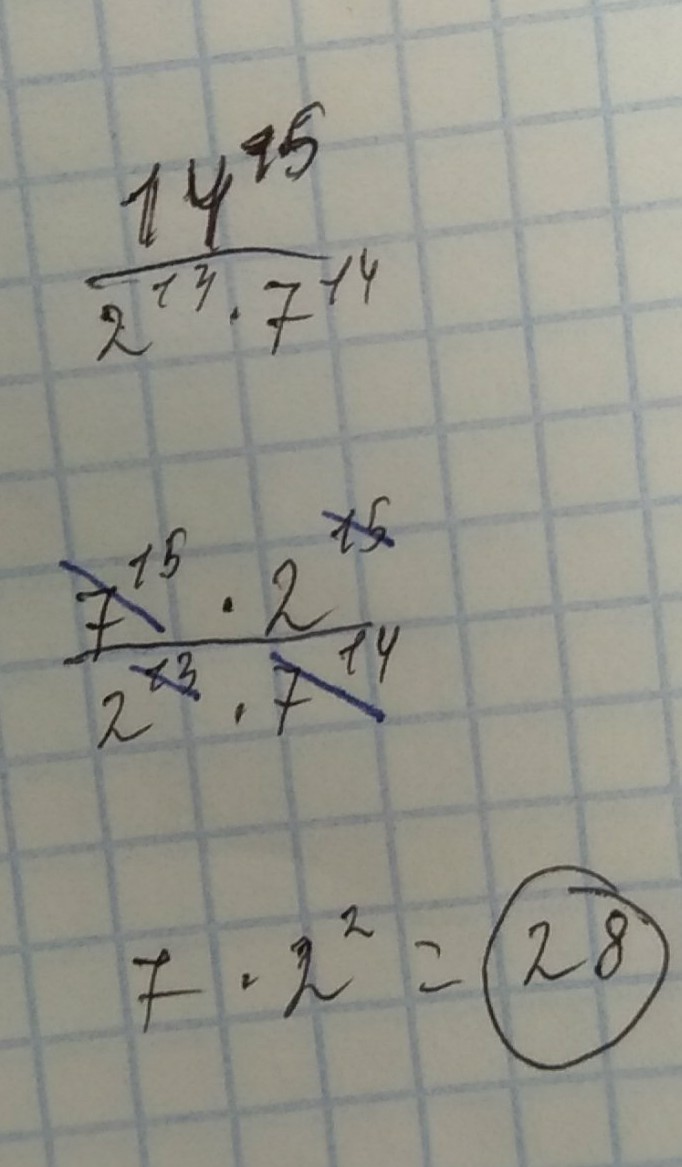 14^15
2^13 · 7^14
7^15 · 2^15
2^13 · 7^14
7 · 2^2 = 28